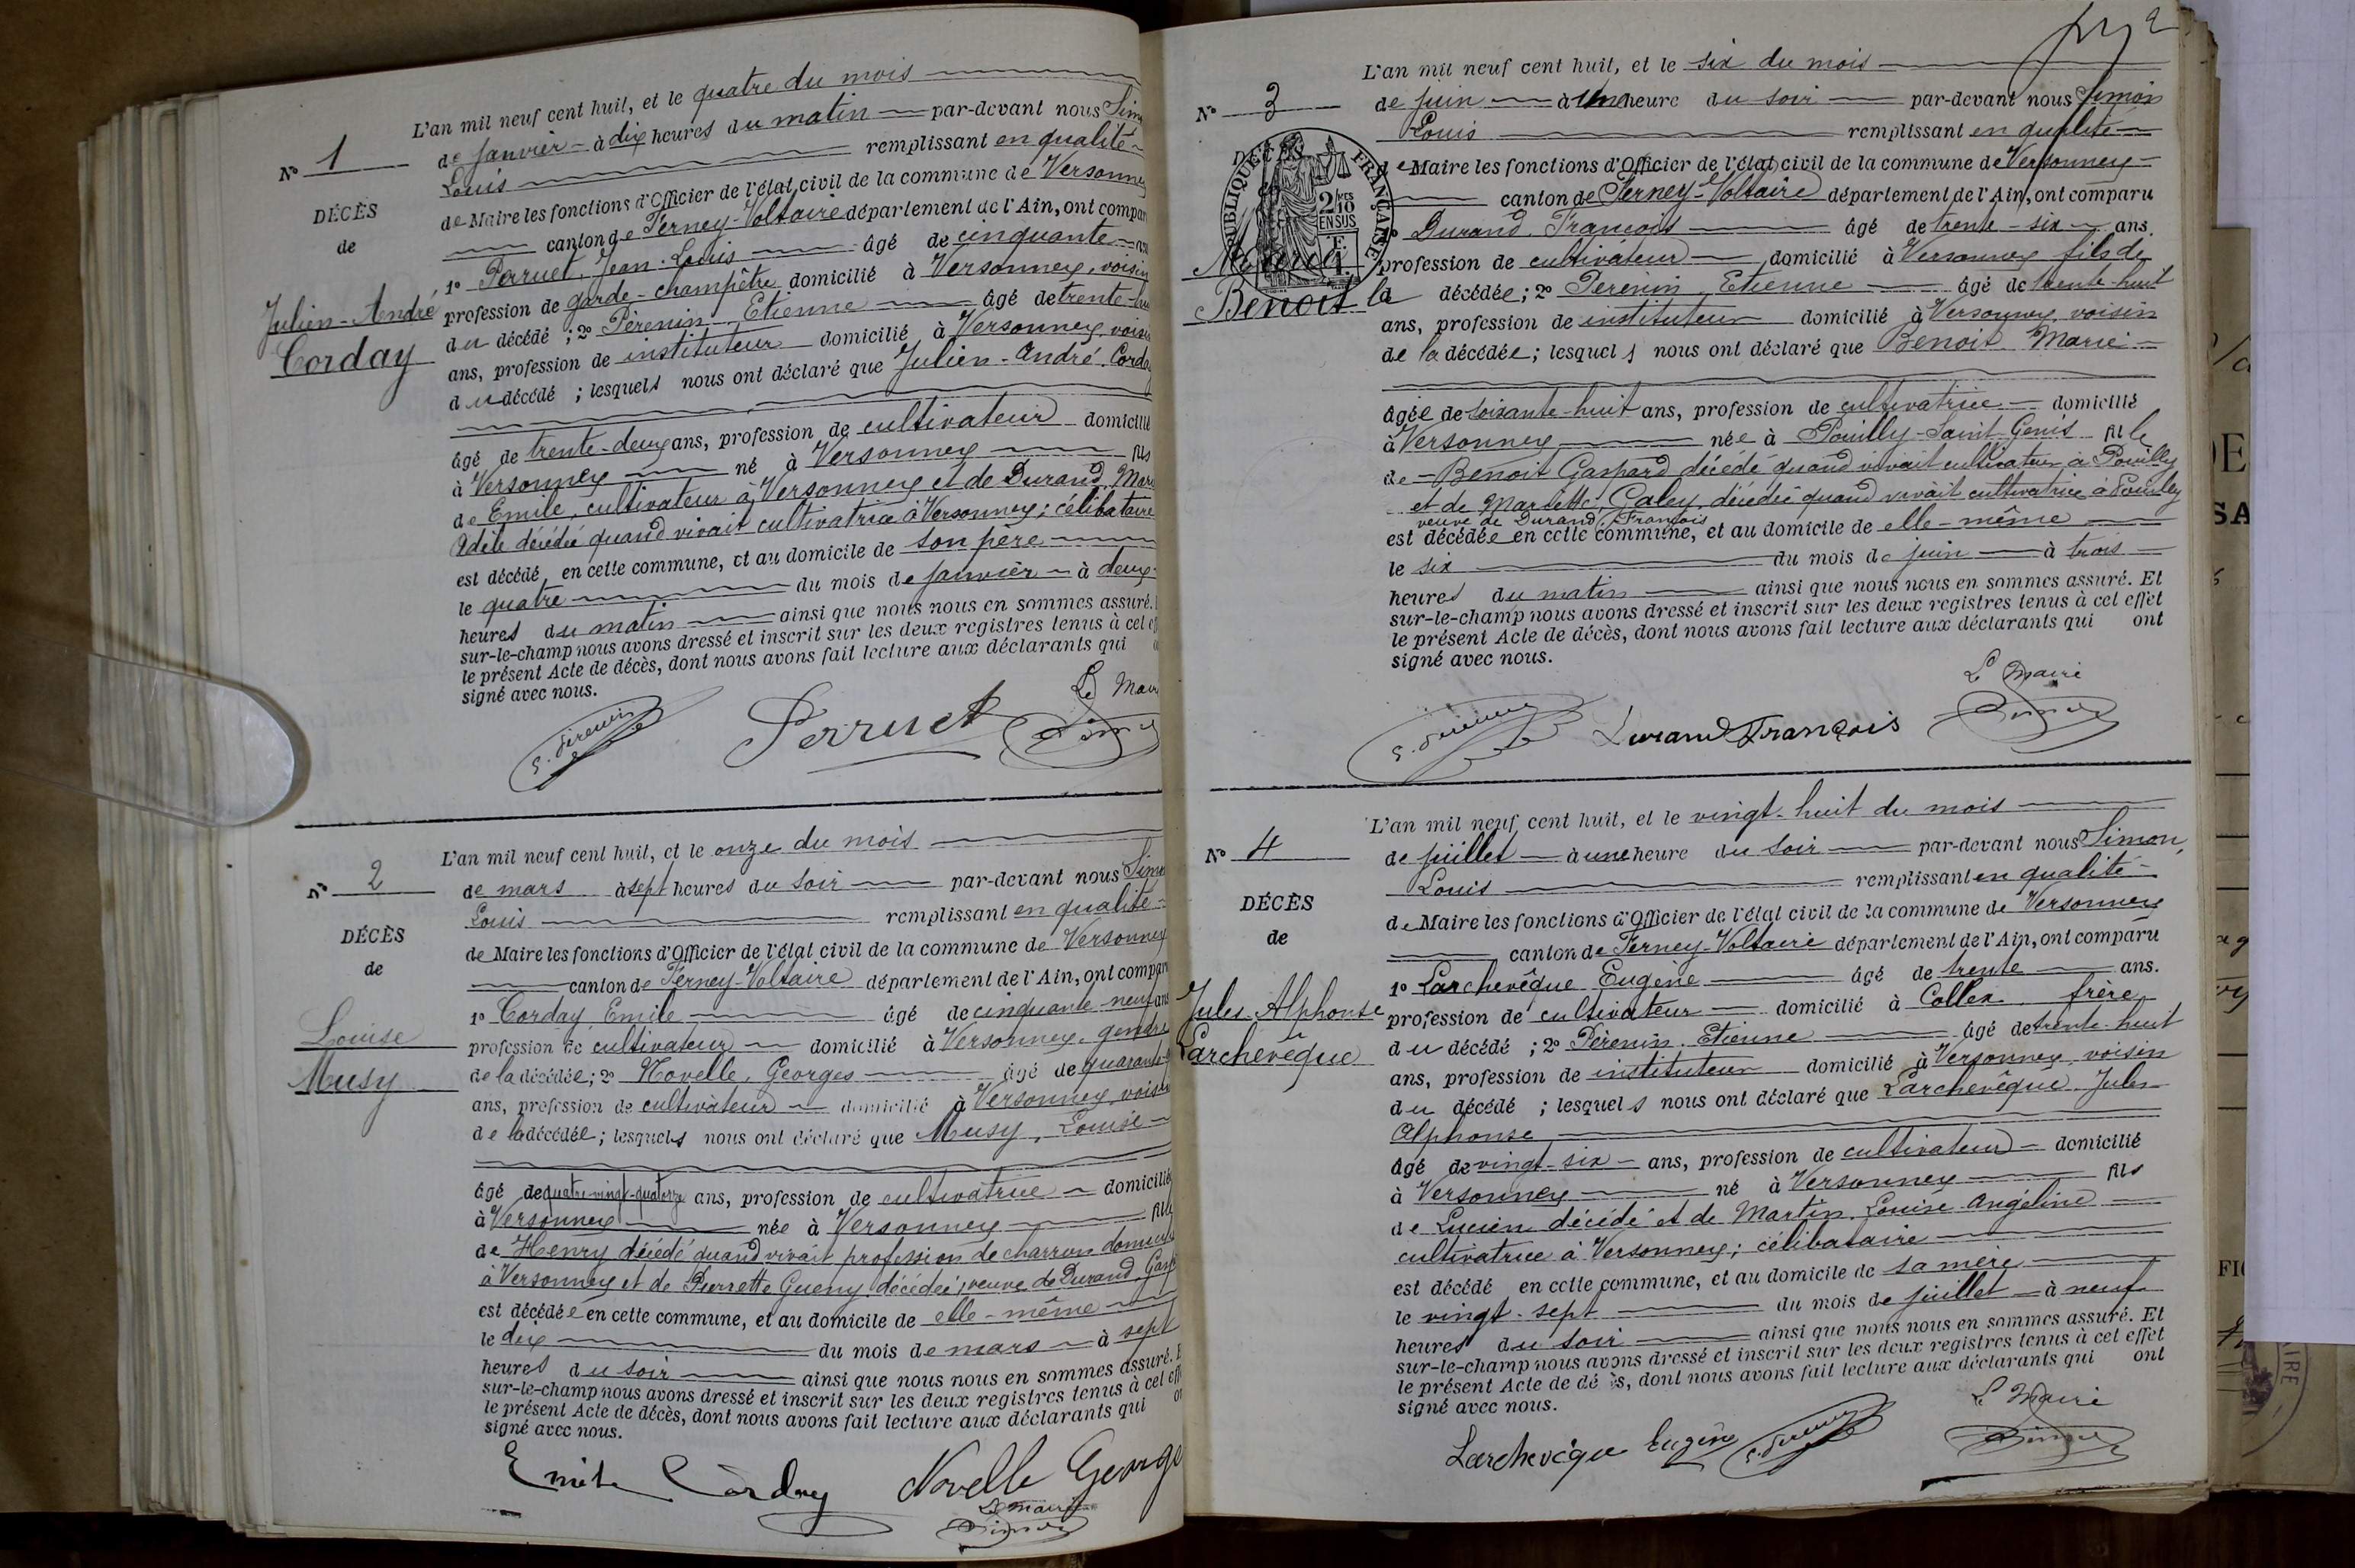 L'an mil neuf cent huit, et le quatre du mois
N° 1 de janvier à dix heures du matin par-devant nous Sim
Louis remplissant en qualité
DÉCÈS
de
Julien-André
Corday
de Maire les fonctions d'Officier de l'état civil de la commune de Versonney
canton de Ferney-Voltaire département de l'Ain, ont compar
1° Perruet, Jean-Louis âgé de cinquante ans
profession de garde-champêtre domicilié à Versonnex, voisin
du décédé ; 2° Pérenin Etienne âgé de trente-hui
ans, profession de instituteur domicilié à Versonnex, voisin
du décédé ; lesquels nous ont déclaré que Julien-André Corday
âgé de trente-deux ans, profession de cultivateur domicilié
à Versonnex né à Versonnex fils
de Emile, cultivateur à Versonnex et de Durand, Marie
Adèle décédée quand vivait cultivatrice à Versonnex ; célibataire
est décédé en cette commune, et au domicile de son père
le quatre du mois de janvier à deux
heures du matin ainsi que nous nous en sommes assuré.
sur-le-champ nous avons dressé et inscrit sur les deux registres tenus à cet ef
le présent Acte de décès, dont nous avons fait lecture aux déclarants qui
signé avec nous.
Le Mair
E. Pérenin Perruet Simon
L'an mil neuf cent huit, et le onze du mois
N° 2 de mars à sept heures du soir par-devant nous Simo
Louis remplissant en qualité
DÉCÈS
de
Louise
Musy
de Maire les fonctions d'Officier de l'état civil de la commune de Versonney
canton de Ferney-Voltaire département de l'Ain, ont compar
1° Corday Emile âgé de cinquante neuf ans
profession de cultivateur domicilié à Versonnex, gendre
de la décédée ; 2° Novelle, Georges âgé de quarante
ans, profession de cultivateur domicilié à Versonnex, voisin
de la décédée ; lesquels nous ont déclaré que Musy, Louise
âgé de quatre-vingt-quatorze ans, profession de cultivatrice domicilié
à Versonnex née à Versonnex fille
de Henry décédé quand vivait profession de charron domicilié
à Versonnex et de Pierrette Gueny décédée ; veuve de Durand, Gasp
est décédée en cette commune, et au domicile de elle-même
le dix du mois de mars à sept
heures du soir ainsi que nous nous en sommes assuré. E
sur-le-champ nous avons dressé et inscrit sur les deux registres tenus à cet eff
le présent Acte de décès, dont nous avons fait lecture aux déclarants qui on
signé avec nous.
Emile Corday Novelle George
Le maire
Simon
2
L'an mil neuf cent huit, et le six du mois
N° 3 de juin à une heure du soir par-devant nous Simon
Louis remplissant en qualité
RÉPUBLIQUE FRANÇAISE
2/10 EN SUS
Marie
Benoit
de Maire les fonctions d'Officier de l'état civil de la commune de Versonney
canton de Ferney-Voltaire département de l'Ain, ont comparu
1° Durand François âgé de trente-six ans.
profession de cultivateur domicilié à Versonnex fils de
la décédée ; 2° Pérenin Etienne âgé de trente-huit
ans, profession de instituteur domicilié à Versonnex, voisin
de la décédée ; lesquels nous ont déclaré que Benoit Marie
âgée de soixante-huit ans, profession de cultivatrice domicilié
à Versonnex née à Pouilly-Saint-Genis fille
de Benoit Gaspard décédé quand vivait cultivateur à Pouilly
et de Mariette Caley, décédée quand vivait cultivatrice à Pouilly
veuve de Durand, François
est décédée en cette commune, et au domicile de elle-même
le six du mois de juin à trois
heures du matin ainsi que nous nous en sommes assuré. Et
sur-le-champ nous avons dressé et inscrit sur les deux registres tenus à cet effet
le présent Acte de décès, dont nous avons fait lecture aux déclarants qui ont
signé avec nous.
Le Maire
E. Pérenin Durand François Simon
L'an mil neuf cent huit, et le vingt-huit du mois
N° 4 de juillet à une heure du soir par-devant nous Simon,
Louis remplissant en qualité
DÉCÈS
de
Jules Alphonse
Larchevêque
de Maire les fonctions d'Officier de l'état civil de la commune de Versonnex
canton de Ferney-Voltaire département de l'Ain, ont comparu
1° Larchevêque Eugène âgé de trente ans.
profession de cultivateur domicilié à Collex frère
du décédé ; 2° Pérenin Etienne âgé de trente-huit
ans, profession de instituteur domicilié à Versonnex, voisin
du décédé ; lesquels nous ont déclaré que Larchevêque Jules
Alphonse
âgé de vingt-six ans, profession de cultivateur domicilié
à Versonnex né à Versonnex fils
de Lucien décédé et de Martin, Louise Angéline
cultivatrice à Versonnex ; célibataire
est décédé en cette commune, et au domicile de sa mère
le vingt-sept du mois de juillet à neuf
heures du soir ainsi que nous nous en sommes assuré. Et
sur-le-champ nous avons dressé et inscrit sur les deux registres tenus à cet effet
le présent Acte de décès, dont nous avons fait lecture aux déclarants qui ont
signé avec nous.
Le Maire
Larchevêque Eugène E. Pérenin Simon